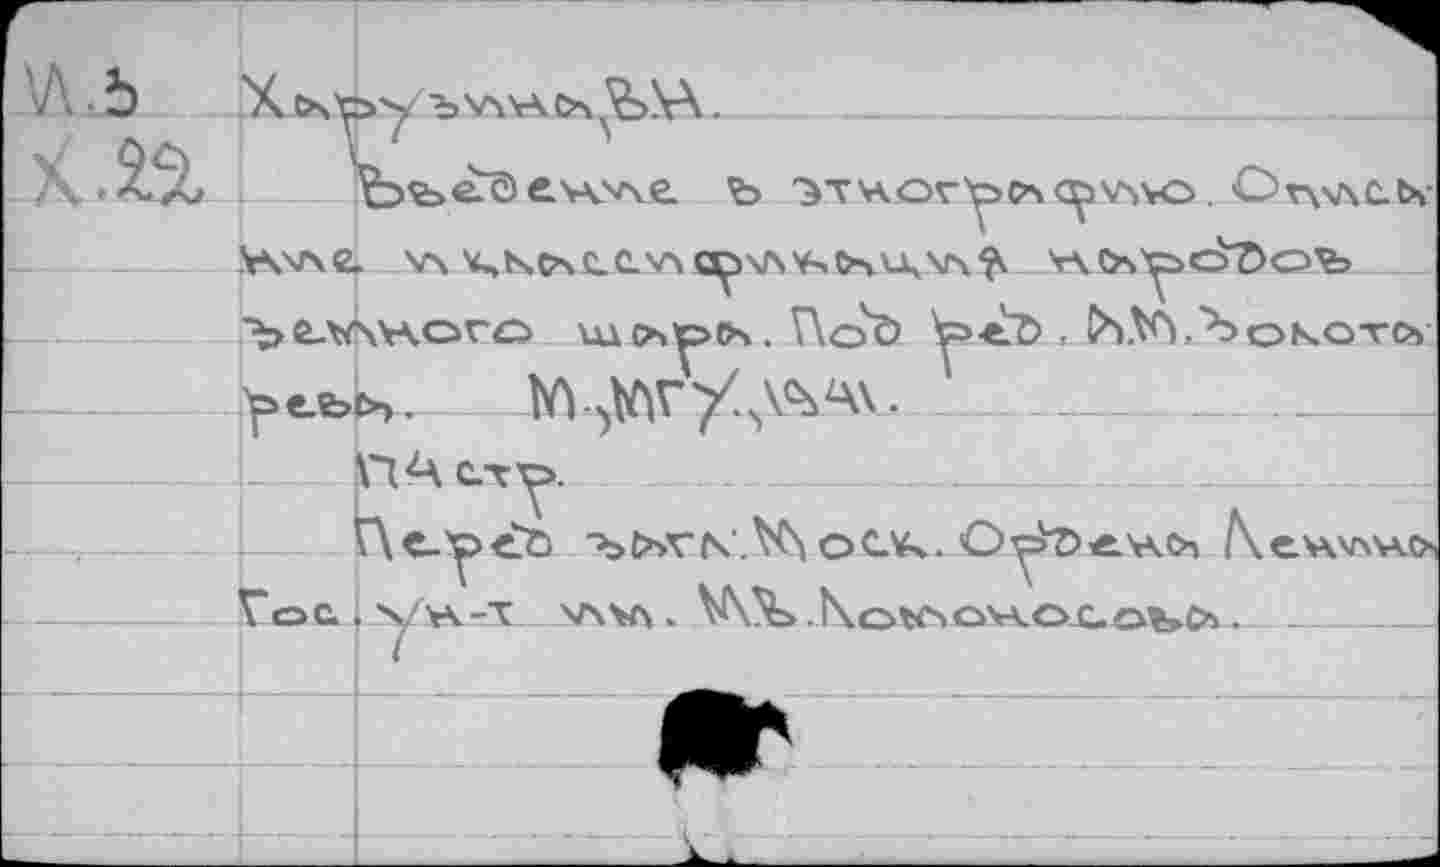 И.Б
Харузина, В.Н.
Х.22
Введение в этнографию. Описа-
ние и классификация народов
земного шара. Под ред. А.М.Золота-
рева. М.,МГУ,1941.
П4 стр.
Перед загл.:Моск. Ордена Ленина
Гос. ун-т им. М.В.Ломоносова.